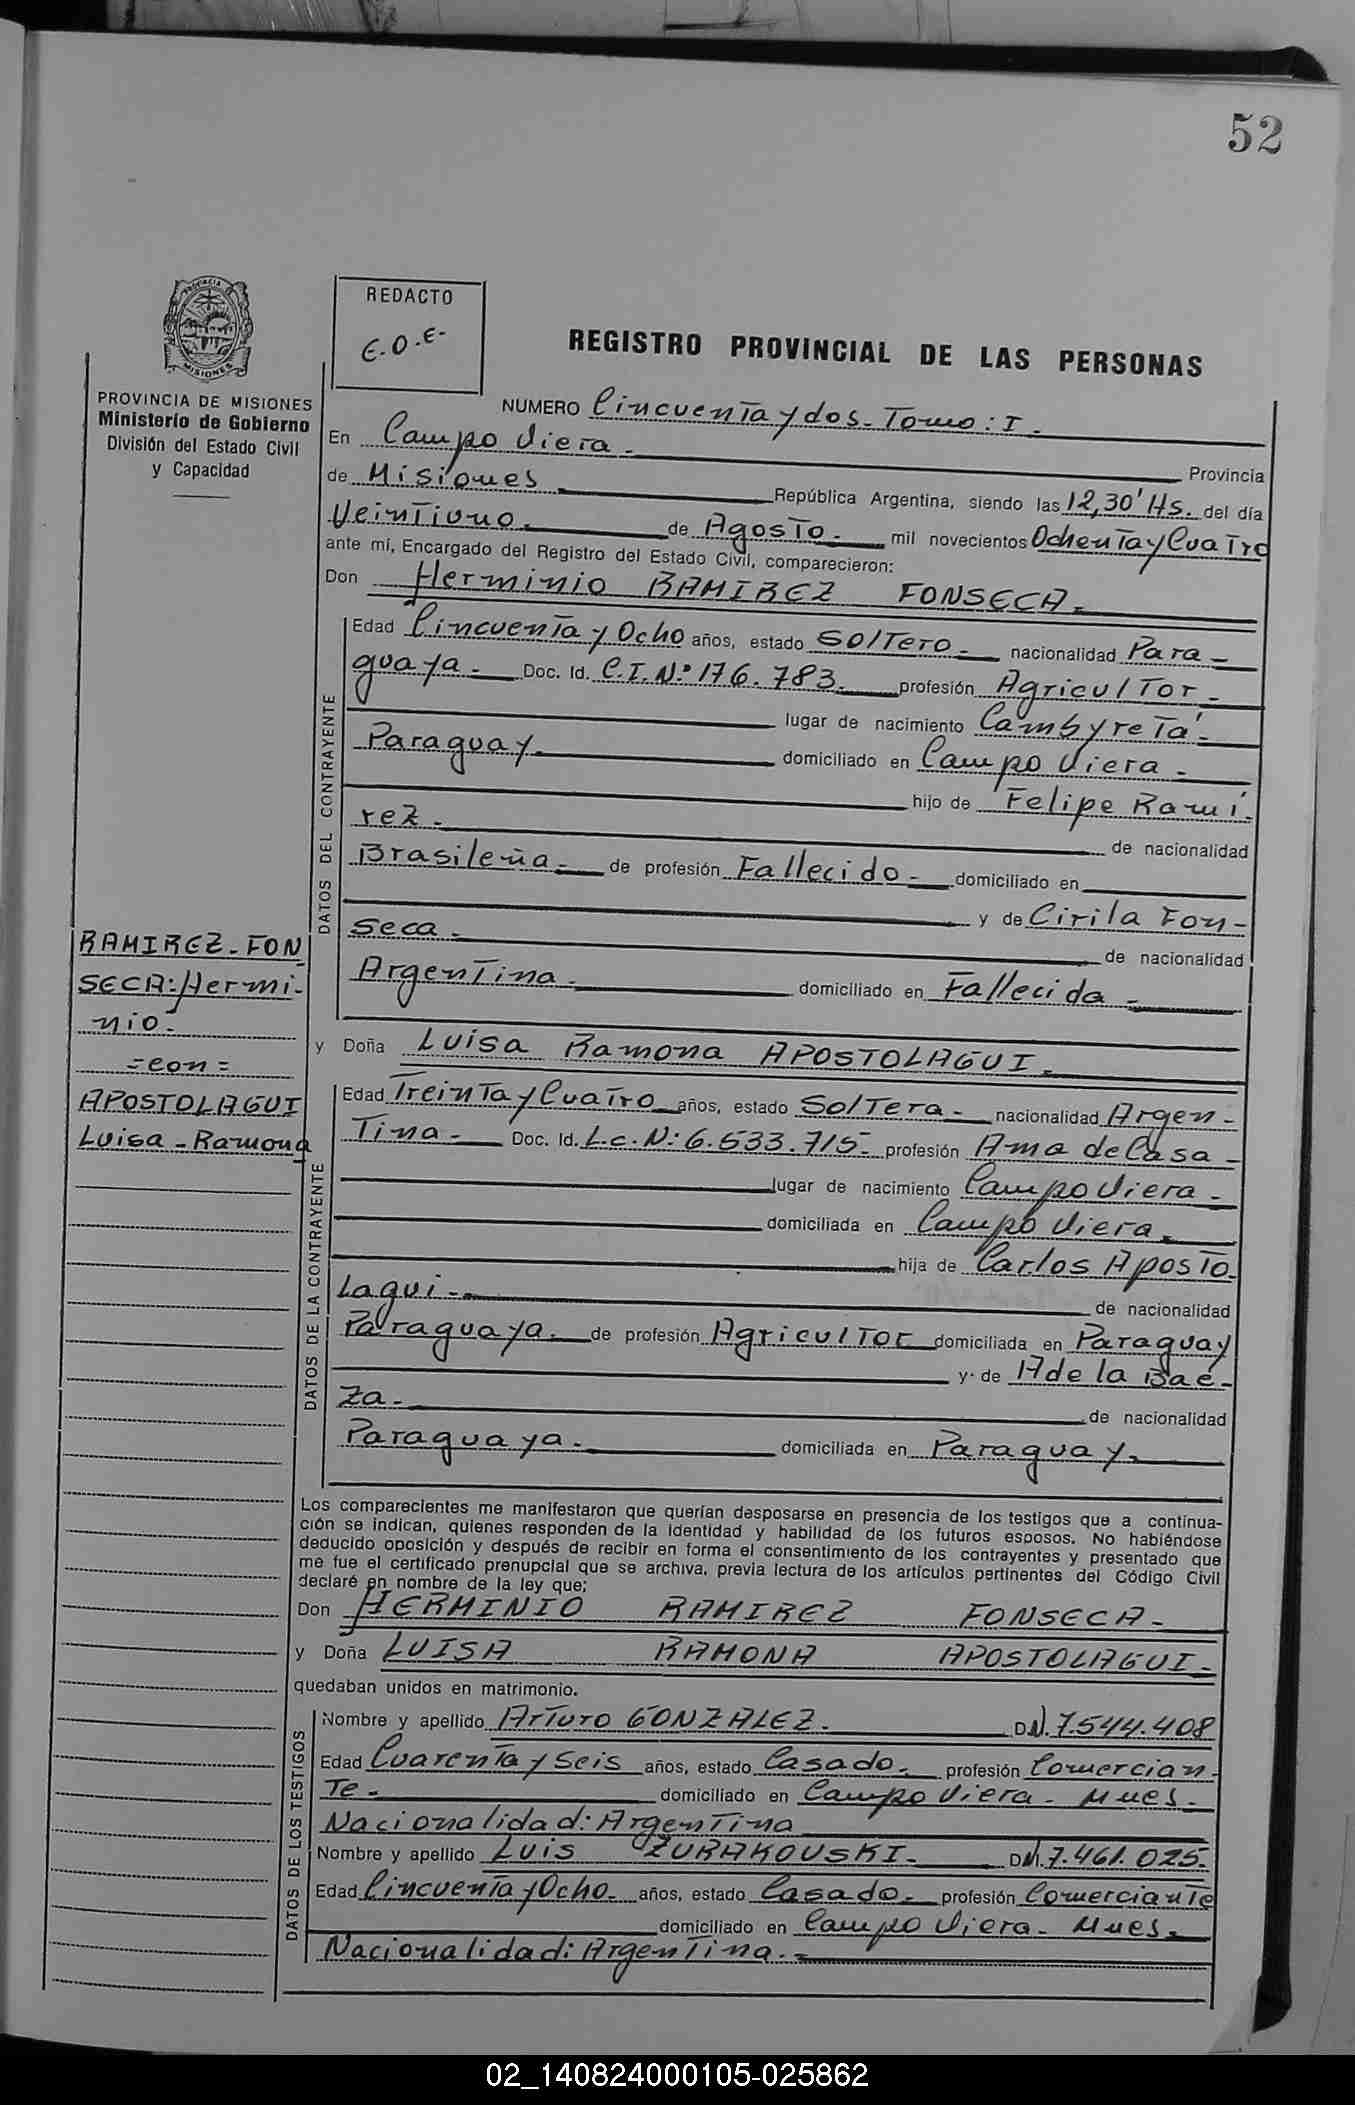 52
PROVINCIA DE MISIONES
Ministerio de Gobierno
División del Estado Civil
y Capacidad
REDACTO
E.O.E.-
REGISTRO PROVINCIAL DE LAS PERSONAS
NUMERO Cincuenta y dos_ Tomo: I.
En Campo Viera. Provincia
de Misiones República Argentina, siendo las 12,30' Hs. del día
Veintiuno. de Agosto. mil novecientos Ochenta y Cuatro
ante mí, Encargado del Registro del Estado Civil, comparecieron:
Don Herminio RAMIREZ FONSECA.
DATOS DEL CONTRAYENTE
Edad Cincuenta y Ocho años, estado Soltero. nacionalidad Para-
guaya. Doc. Id. C.I.Nº 176.783. profesión Agricultor.
lugar de nacimiento Cambyretá.
Paraguay. domiciliado en Campo Viera.
hijo de Felipe Ramí-
rez. de nacionalidad
Brasileña. de profesión Fallecido. domiciliado en
y de Cirila Fon-
seca. de nacionalidad
Argentina. domiciliado en Fallecida.
y Doña Luisa Ramona APOSTOLAGUI.
RAMIREZ_FON
SECA: Hermi-
nio.
=con=
APOSTOLAGUI
Luisa_Ramona
DATOS DE LA CONTRAYENTE
Edad Treinta y Cuatro años, estado Soltera. nacionalidad Argen-
tina. Doc. Id. L.C.N: 6.533.715. profesión Ama de Casa-
lugar de nacimiento Campo Viera.
domiciliada en Campo Viera.
hija de Carlos Aposto-
lagui. de nacionalidad
Paraguaya. de profesión Agricultor domiciliada en Paraguay
y de Adela Baé-
za. de nacionalidad
Paraguaya. domiciliada en Paraguay.
Los comparecientes me manifestaron que querían desposarse en presencia de los testigos que a continua-
ción se indican, quienes responden de la identidad y habilidad de los futuros esposos. No habiéndose
deducido oposición y después de recibir en forma el consentimiento de los contrayentes y presentado que
me fue el certificado prenupcial que se archiva, previa lectura de los artículos pertinentes del Código Civil
declaré en nombre de la ley que;
Don HERMINIO RAMIREZ FONSECA.
y Doña LUISA RAMONA APOSTOLAGUI.
quedaban unidos en matrimonio.
DATOS DE LOS TESTIGOS
Nombre y apellido Arturo GONZALEZ. DNI. 7.544.408
Edad Cuarenta y Seis años, estado Casado. profesión Comercian-
te. domiciliado en Campo Viera. Mnes.
Nacionalidad: Argentina
Nombre y apellido Luis ZURAKOUSKI. DNI. 7.461.025.
Edad Cincuenta y Ocho. años, estado Casado. profesión Comerciante
domiciliado en Campo Viera. Mnes.
Nacionalidad: Argentina.
02_140824000105-025862